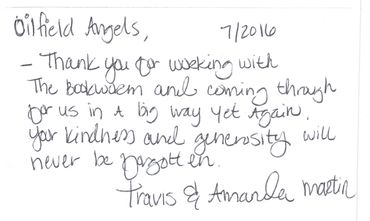 Oilfield Angels, 7/2016
- Thank you for working with
The Bookworm and coming through
for us in a big way yet again.
Your kindness and generosity will
never be forgotten.
Travis & Amanda Martin